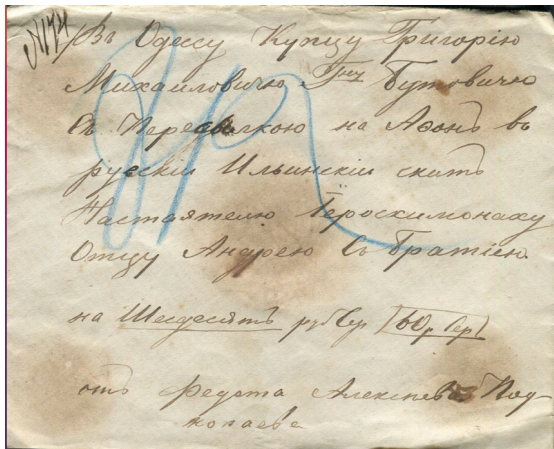 №174
Въ Одессу Купцу Григорію
Михаиловичю Бутовичю
Съ Пересылкою на Аѳонъ въ
рускій Ильинскій скитъ
Настоятелю Іеросхимонаху
Отцу Андрею съ братіею
на Шесдесятъ руб Сер 60 р Сер
отъ Федота Алексѣева Под-
копаева